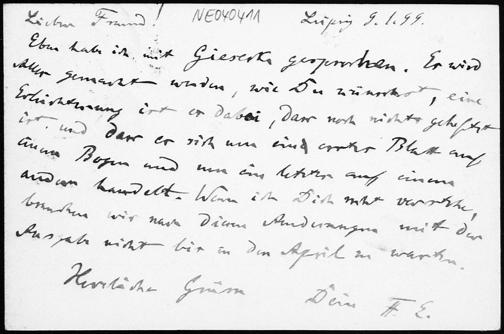 Lieber Freund! NE040411 Leipzig 9.1.99.
Eben habe ich mit Giesecke gesprochen. Er wird
Alles gemacht werden, wie Du wünschst, eine
Erleichterung ist es dabei, dass noch nichts geheftet
ist und dass es sich um ein erstes Blatt auf
einem Bogen und um ein letztes auf einem
andern handelt. Wenn ich Dich recht verstehe,
brauchen wir nach diesen Änderungen mit der
Ausgabe nicht bis in den April zu warten.
Herzliche Grüsse Dein F. E.